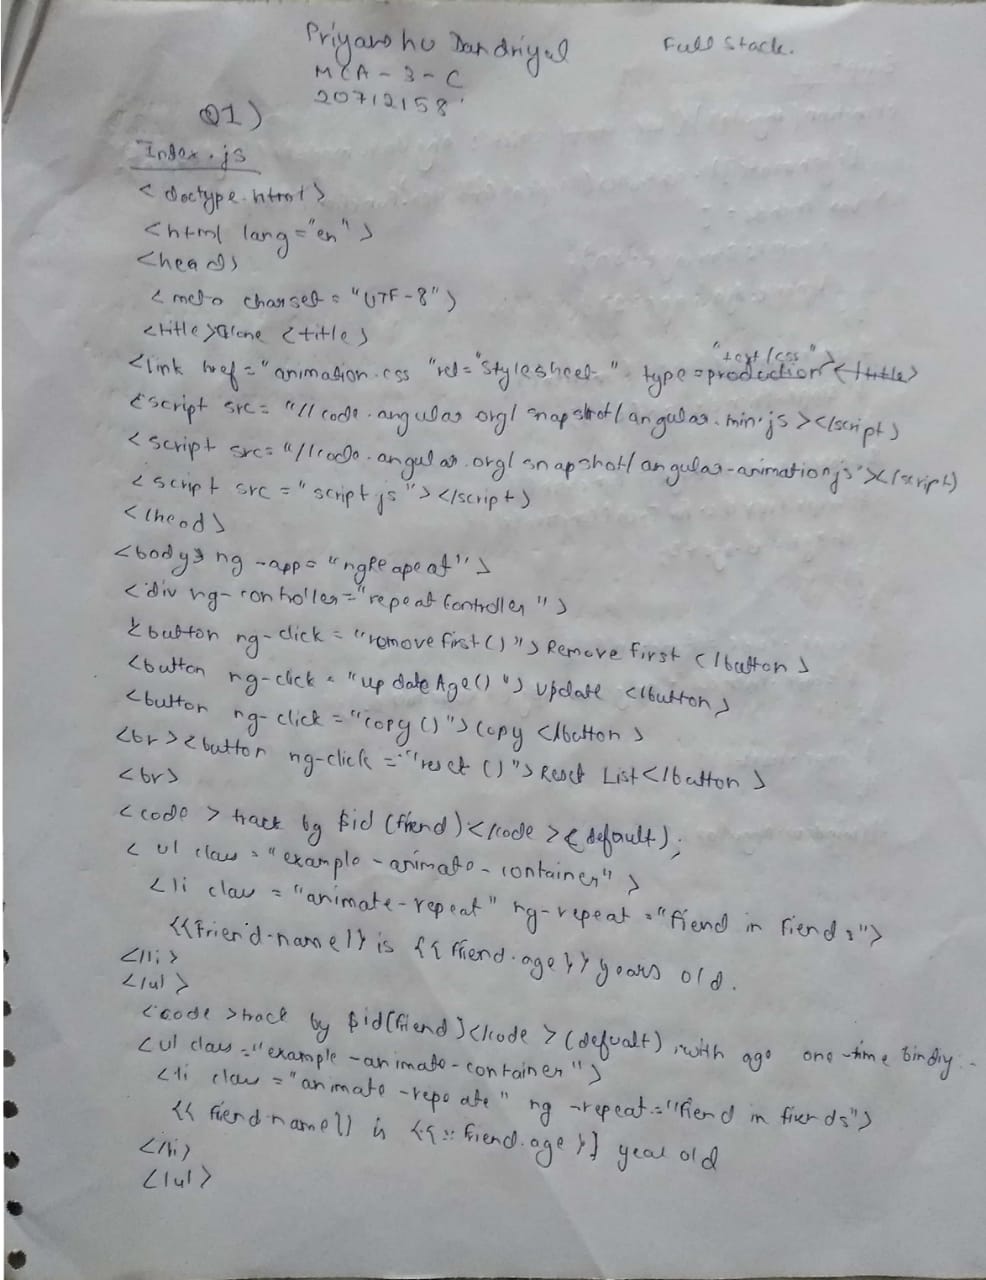 Priyanshu Dandriyal Full Stack.
MCA - 3 - C
20712158
Q1)
Index.js
< doctype.html>
<html lang="en">
<head>
<meta charset="UTF-8">
<title> <title>
<link href="animation.css "rel="stylesheet" type="text/css">
<script src="//code.angular org/ snapshot/angular.min.js ></script>
<script src="//code.angular.org/ snapshot/ angular-animation.js"></script>
<script src="script js"></script>
</head>
<body> ng-app="ngReapeat">
<div ng-controller="repeat Controller">
<button ng-click="remove first()"> Remove first </button>
<button ng-click="update Age()"> Update </button>
<button ng-click="copy()">Copy </button>
<br><button ng-click="reset ()"> Reset List</button>
<br>
<code> track by $id (friend)</code>(default);
<ul class="example-animate-container">
<li class="animate-repeat" ng-repeat="fiend in fiends">
{{Friend.name}} is {{ friend.age}} years old.
</li>
</ul>
<code>track by $id(fiend)</code>(defualt), with age one-time bindiy..
<ul class="example-animate-container">
<li class="animate-repeate" ng-repeat="fiend in fiends">
{{ fiend.name}} is {{:: fiend.age}} year old
</li>
</ul>